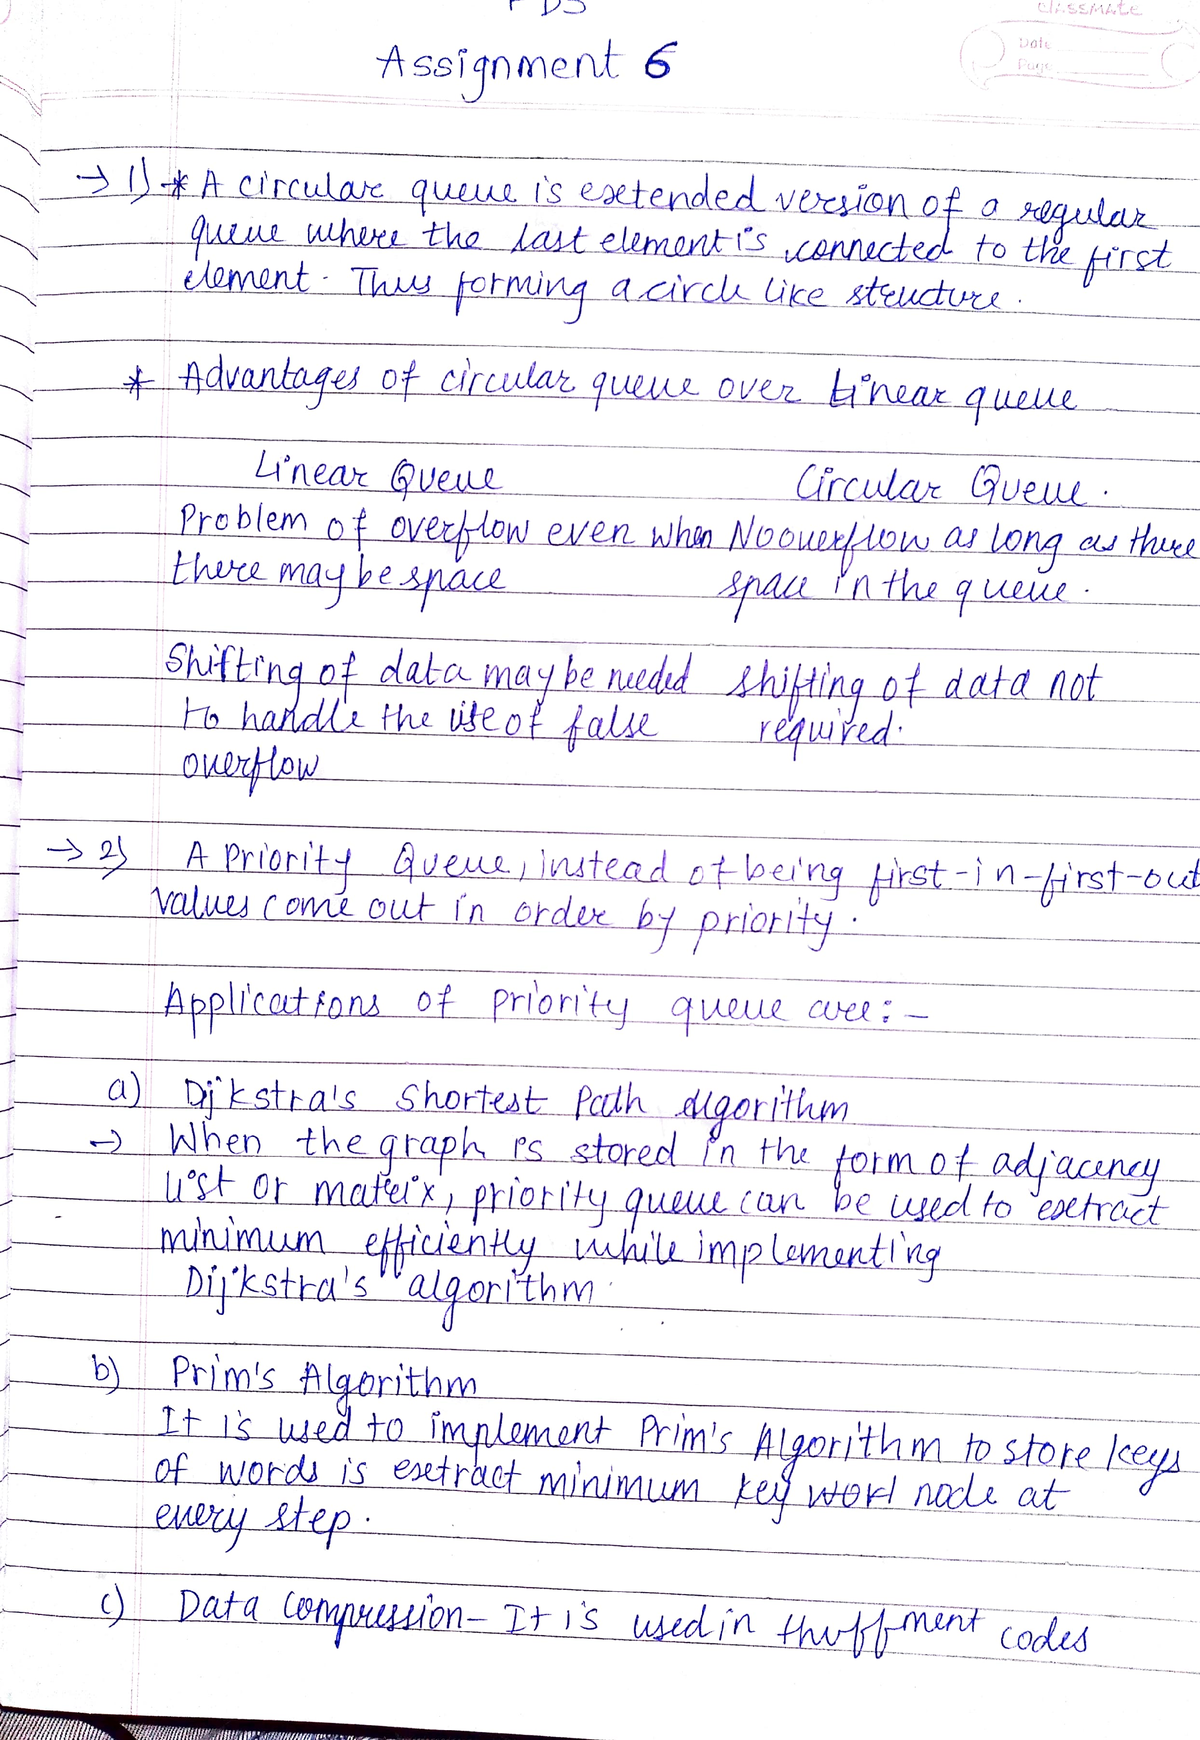 FDS
classmate
Date
Page
Assignment 6
→ 1) * A circular queue is extended version of a regular
queue where the last element is connected to the first
element. Thus forming a circle like structure.
* Advantages of circular queue over Linear queue
Linear Queue Circular Queue.
Problem of overflow even when No overflow as long as there
there may be space space in the queue.
Shifting of data may be needed shifting of data not
to handle the use of false required.
overflow
→ 2) A Priority Queue, instead of being first-in-first-out
values come out in order by priority.
Applications of priority queue are:-
a) Dijkstra's Shortest Path Algorithm
→ When the graph is stored in the form of adjacency
list or matrix, priority queue can be used to extract
minimum efficiently while implementing
Dijkstra's algorithm.
b) Prim's Algorithm
It is used to implement Prim's Algorithm to store keys
of words is extract minimum key node at
every step.
c) Data Compression- It is used in codes